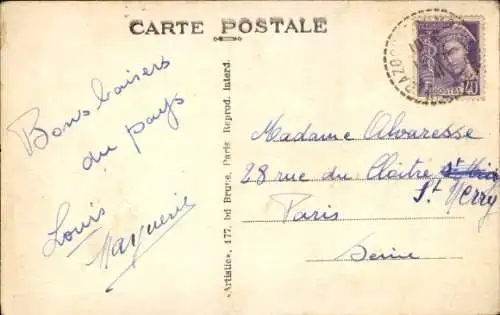 CARTE POSTALE
Bons baisers
du pays
Louis
"Artistic", 177, bd Brune, Paris Reprod. Interd.
Madame Alvaresse
28 rue du Cloître
St Merry
Paris
Seine
POSTES
40